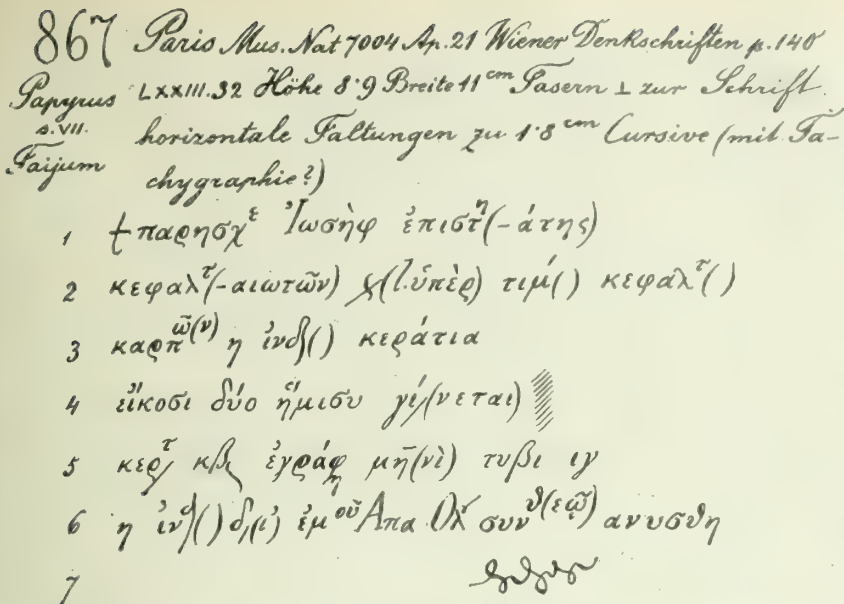 867 Paris Mus. Nat 7004 Ap. 21 Wiener Denkschriften p. 140
Papyrus LXXIII.32 Höhe 8·9 Breite 11 cm Fasern ⊥ zur Schrift.
s. VII. horizontale Faltungen zu 1·8 cm Cursive (mit Ta-
Faijum chygraphie?)
1 ϯ παρησχε Ἰωσὴφ ἐπιστη(-άτης)
2 κεφαλτ(-αιωτῶν) (l. ὑπὲρ) τιμ() κεφαλτ()
3 καρπῶ(ν) η ἰνδ() κεράτια
4 εἴκοσι δύο ἥμισυ γί(νεται)
5 κερτ κβ ἐγράφη μη(νὶ) τυβι ιγ
6 η ἰνδ() δ(ι) ἐμοῦ Απα Ολ συνθ(εῷ) ανυσθη
7